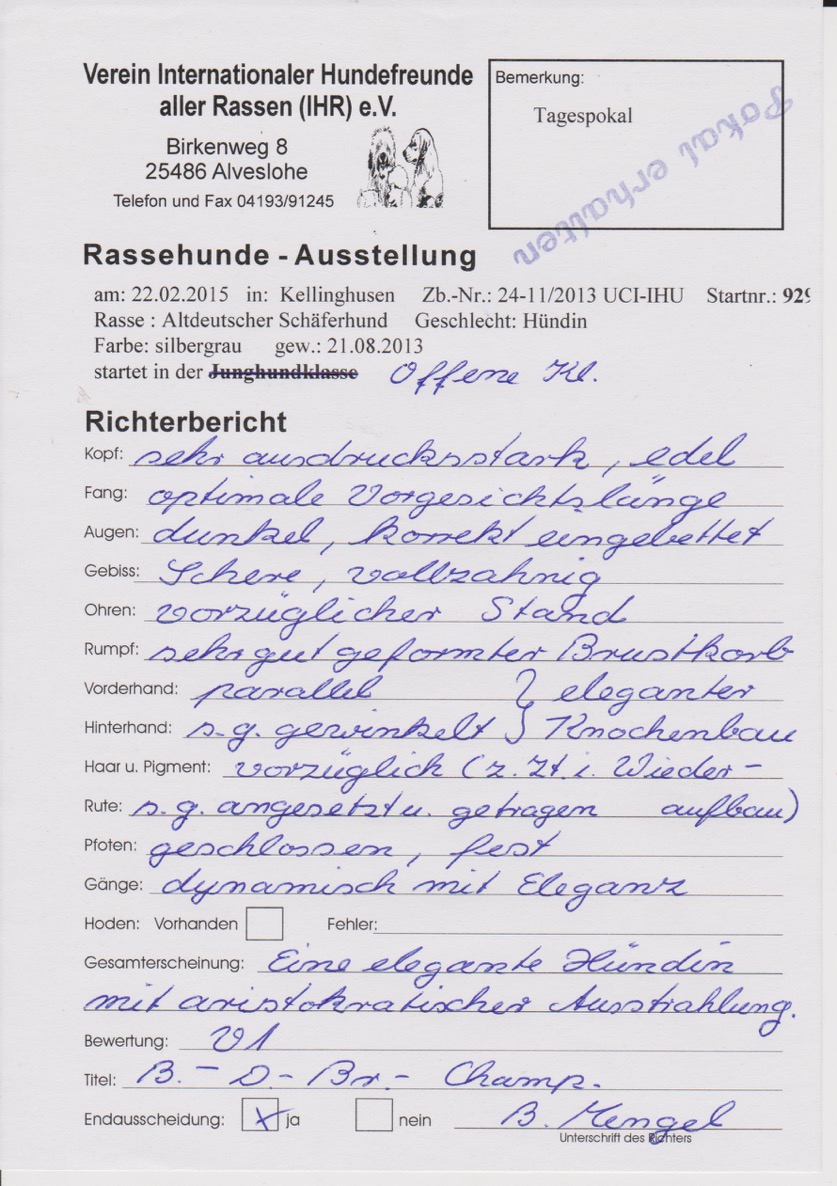 Verein Internationaler Hundefreunde
aller Rassen (IHR) e.V.
Birkenweg 8
25486 Alveslohe
Telefon und Fax 04193/91245
Bemerkung:
Tagespokal
Pokal erhalten
Rassehunde - Ausstellung
am: 22.02.2015 in: Kellinghusen Zb.-Nr.: 24-11/2013 UCI-IHU Startnr.: 929
Rasse : Altdeutscher Schäferhund Geschlecht: Hündin
Farbe: silbergrau gew.: 21.08.2013
startet in der Junghundklasse Offene Kl.
Richterbericht
Kopf: sehr ausdrucksstark, edel
Fang: optimale Vorgesichtslänge
Augen: dunkel, korrekt eingebettet
Gebiss: Schere, vollzahnig
Ohren: vorzüglicher Stand
Rumpf: sehr gut geformter Brustkorb
Vorderhand: parallel } eleganter
Hinterhand: s.g. gewinkelt } Knochenbau
Haar u. Pigment: vorzüglich (z. Zt. i. Wieder-
Rute: s.g. angesetzt u. getragen aufbau)
Pfoten: geschlossen, fest
Gänge: dynamisch mit Eleganz
Hoden: Vorhanden Fehler:
Gesamterscheinung: Eine elegante Hündin
mit aristokratischer Ausstrahlung.
Bewertung: V1
Titel: B.- D.- Br.- Champ.
Endausscheidung: x ja nein B. Mengel
Unterschrift des Richters